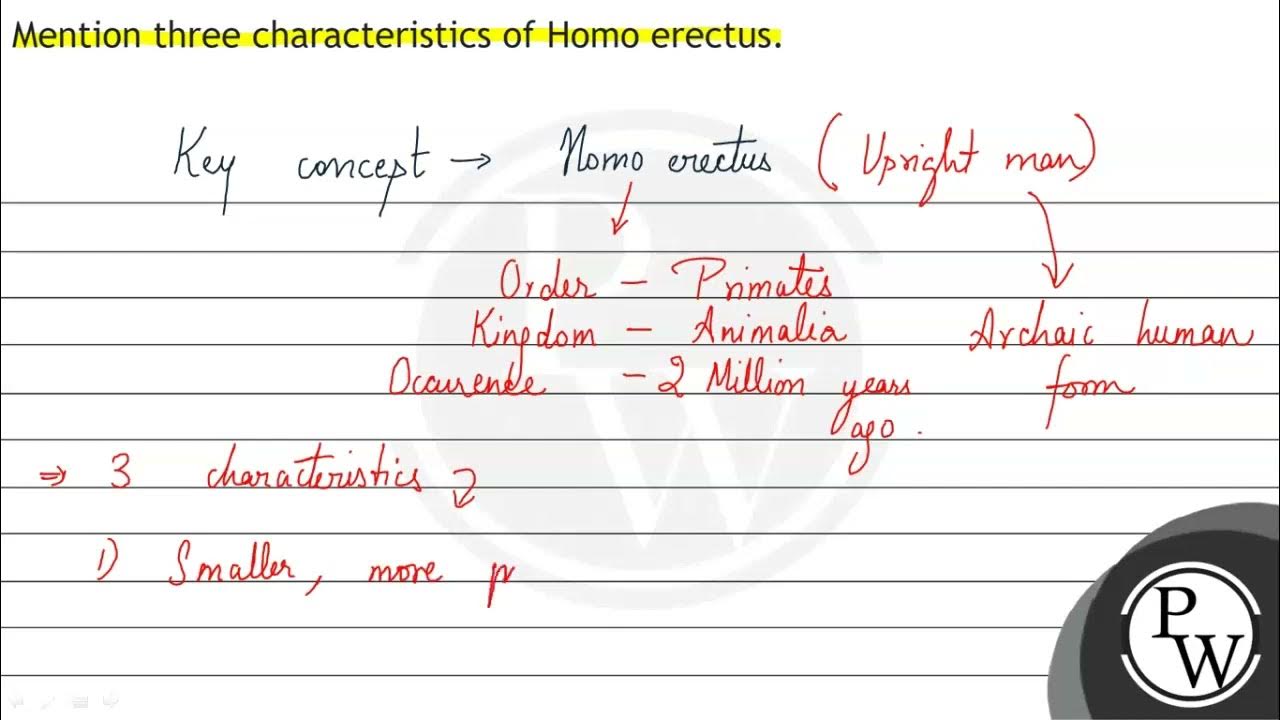 Mention three characteristics of Homo erectus.
Key concept → Homo erectus (Upright man)
Order – Primates
Kingdom – Animalia Archaic human
Occurence – 2 Million years form
ago.
⇒ 3 characteristics
1) Smaller, more p
PW
PW